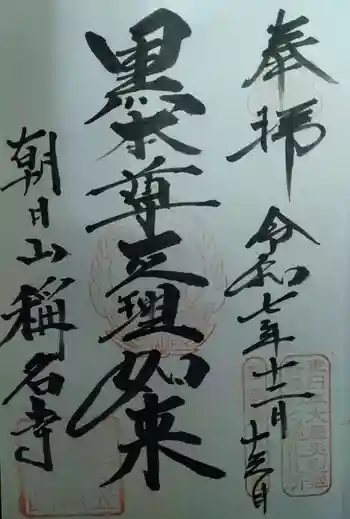 奉拝
令和七年十二月十三日
黒本尊正理如来
朝日山稱名寺